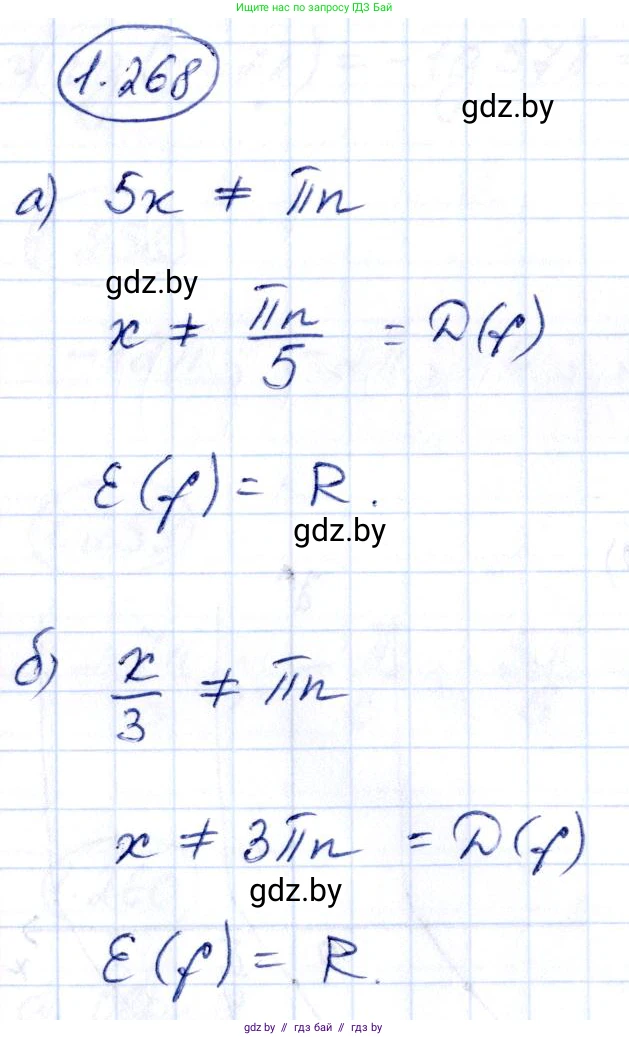 Ищите нас по запросу ГДЗ Бай
1.268
gdz.by
а) 5x ≠ πn
gdz.by
x ≠ πn/5 = D(f)
E(f) = R.
gdz.by
б) x/3 ≠ πn
x ≠ 3πn = D(f)
gdz.by
E(f) = R.
gdz.by // гдз бай // гдз by